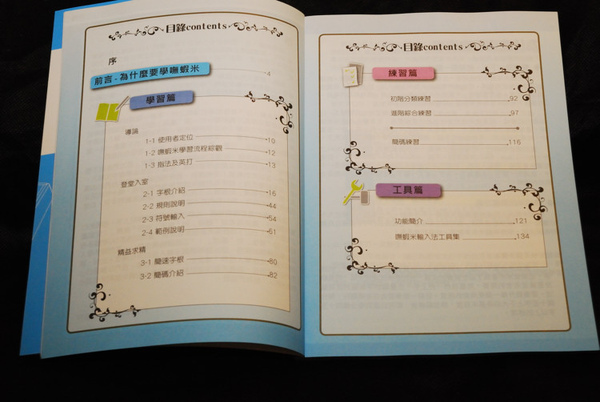 目錄contents
序
前言-為什麼要學嘸蝦米 4
學習篇
導論
1-1 使用者定位 10
1-2 嘸蝦米學習流程綜觀 12
1-3 指法及英打 13
登堂入室
2-1 字根介紹 16
2-2 規則說明 44
2-3 符號輸入 54
2-4 範例說明 61
精益求精
3-1 簡速字根 80
3-2 簡碼介紹 82
目錄contents
練習篇
初階分類練習 92
進階綜合練習 97
簡碼練習 116
工具篇
功能簡介 121
嘸蝦米輸入法工具集 134